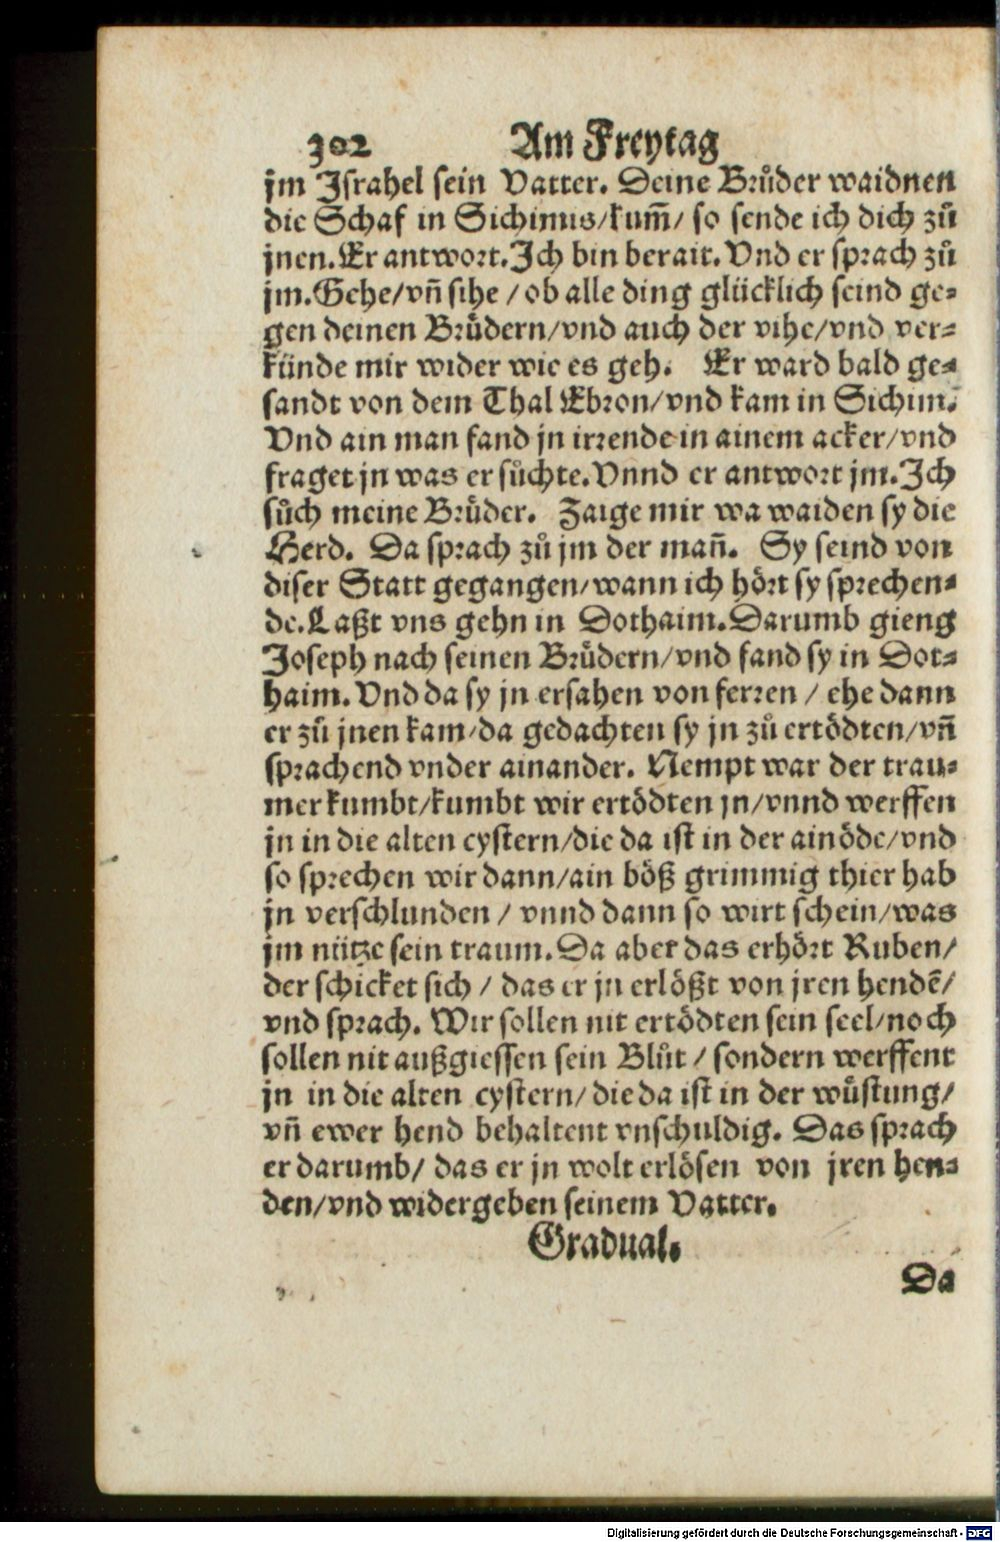 302 Am Freytag
jm Israhel sein Vatter. Deine Bruͤder waidnen
die Schaf in Sichimis/kum̃/ so sende ich dich zuͦ
jnen. Er antwort. Ich bin berait. Vnd er sprach zuͦ
jm. Gehe/vñ sihe / ob alle ding glücklich seind ge-
gen deinen Bruͤdern/vnd auch der vihe/vnd ver-
künde mir wider wie es geh. Er ward bald ge-
sandt von dem Thal Ebron/vnd kam in Sichim.
Vnd ain man fand jn irrende in ainem acker/vnd
fraget jn was er suͦchte. Vnnd er antwort jm. Ich
suͦch meine Bruͤder. Zaige mir wa waiden sy die
Herd. Da sprach zuͦ jm der mañ. Sy seind von
diser Statt gegangen/wann ich hoͤrt sy sprechen-
de. Laßt vns gehn in Dothaim. Darumb gieng
Joseph nach seinen Bruͤdern/vnd fand sy in Dot-
haim. Vnd da sy jn ersahen von ferren / ehe dann
er zuͦ jnen kam/da gedachten sy jn zuͦ ertoͤdten/vñ
sprachend vnder ainander. Nempt war der trau-
mer kumbt/kumbt wir ertoͤdten jn/vnnd werffen
jn in die alten cystern/die da ist in der ainoͤde/vnd
so sprechen wir dann/ain boͤß grimmig thier hab
jn verschlunden / vnnd dann so wirt schein/was
jm nütze sein traum. Da aber das erhoͤrt Ruben/
der schicket sich / das er jn erloͤßt von jren hendẽ/
vnd sprach. Wir sollen nit ertoͤdten sein seel/noch
sollen nit außgiessen sein Bluͦt / sondern werffent
jn in die alten cystern/die da ist in der wuͤstung/
vñ ewer hend behaltent vnschuldig. Das sprach
er darumb/ das er jn wolt erloͤsen von jren hen-
den/vnd widergeben seinem Vatter.
Gradual.
Da
Digitalisierung gefördert durch die Deutsche Forschungsgemeinschaft - DFG